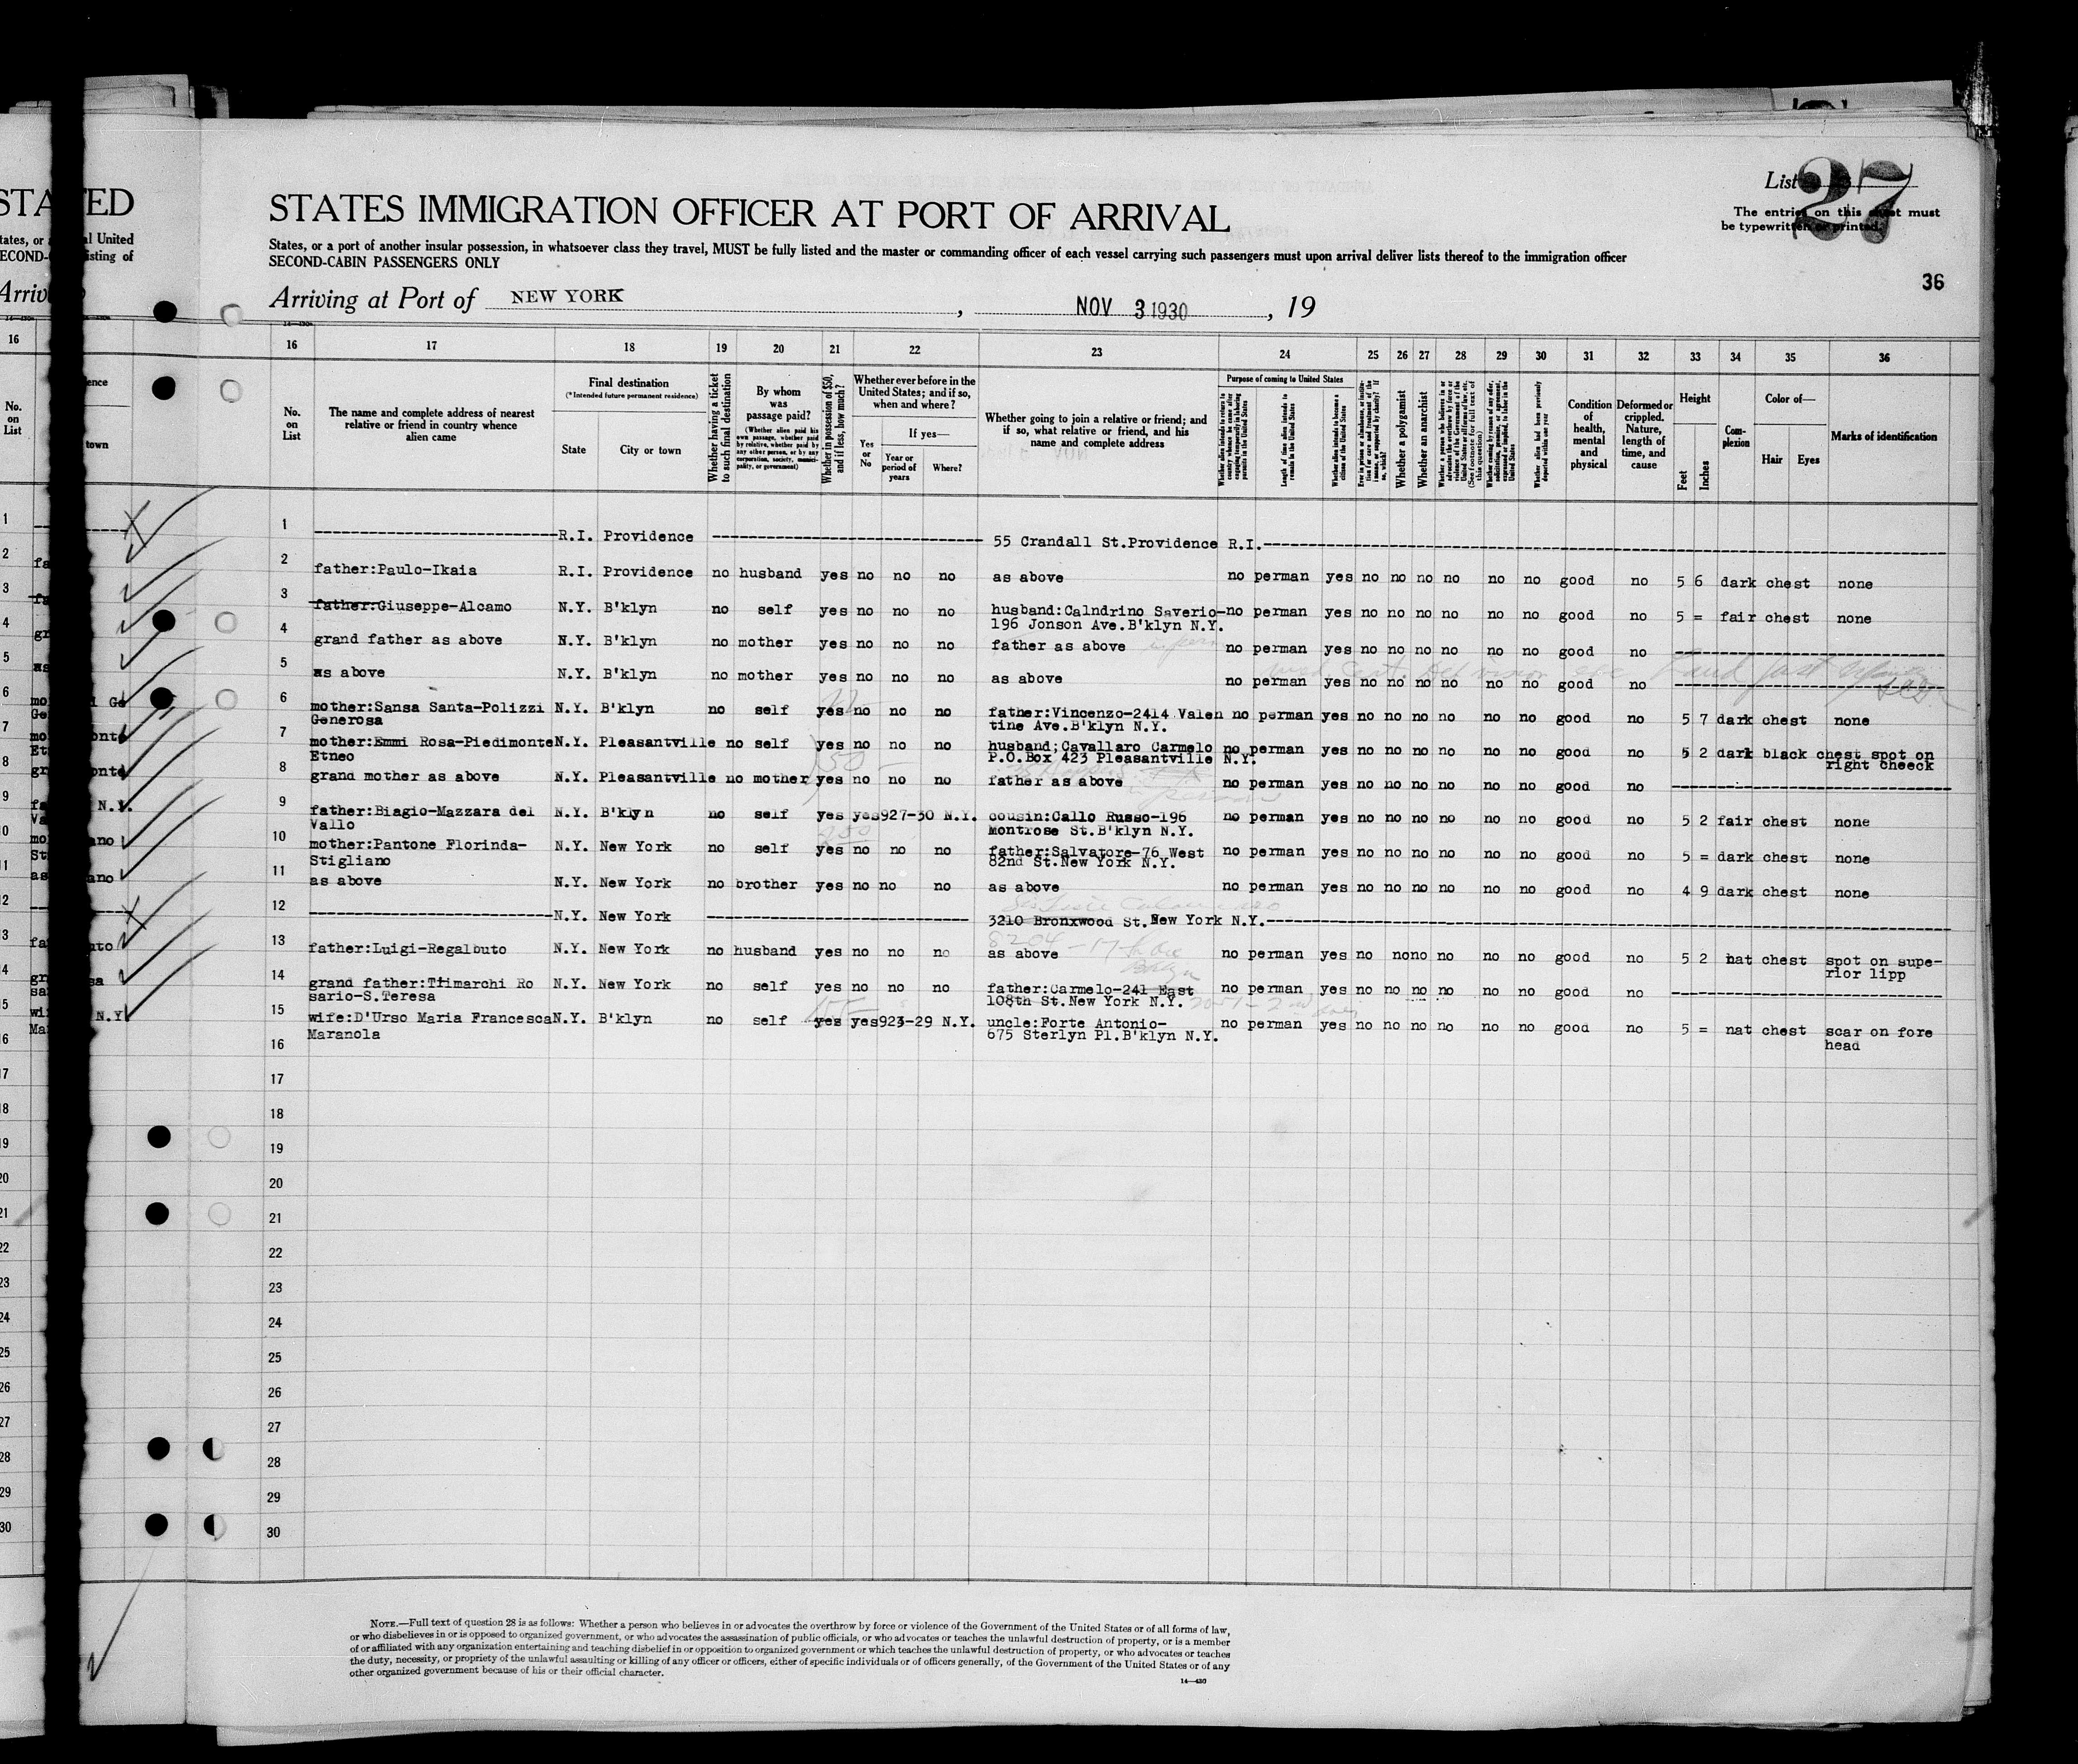 STATES IMMIGRATION OFFICER AT PORT OF ARRIVAL
List 27
The entries on this sheet must
be typewritten or printed.
States, or a port of another insular possession, in whatsoever class they travel, MUST be fully listed and the master or commanding officer of each vessel carrying such passengers must upon arrival deliver lists thereof to the immigration officer
SECOND-CABIN PASSENGERS ONLY
36
Arriving at Port of NEW YORK, NOV 3 1930, 19
16 17 18 19 20 21 22 23 24 25 26 27 28 29 30 31 32 33 34 35 36
No. on List
The name and complete address of nearest relative or friend in country whence alien came
Final destination
(*Intended future permanent residence)
State
City or town
Whether having a ticket to such final destination
By whom was passage paid?
(Whether alien paid his own passage, whether paid by relative, whether paid by any other person, or by any corporation, society, municipality, or government)
Whether in possession of $50, and if less, how much?
Whether ever before in the United States; and if so, when and where?
Yes or No
If yes—
Year or period of years
Where?
Whether going to join a relative or friend; and if so, what relative or friend, and his name and complete address
Purpose of coming to United States
Length of time alien intends to remain in the United States
Whether alien intends to become a citizen of the United States
Whether a polygamist
Whether an anarchist
Condition of health, mental and physical
Deformed or crippled. Nature, length of time, and cause
Height
Feet
Inches
Complexion
Color of—
Hair
Eyes
Marks of identification
1 R.I. Providence 55 Crandall St.Providence R.I.
2 father:Paulo-Ikaia R.I. Providence no husband yes no no no as above no perman yes no no no no no no good no 5 6 dark chest none
3 father:Giuseppe-Alcamo N.Y. B'klyn no self yes no no no husband:Calndrino Saverio- no perman yes no no no no no no good no 5 = fair chest none
196 Jonson Ave.B'klyn N.Y.
4 grand father as above N.Y. B'klyn no mother yes no no no father as above no perman yes no no no no no no good no
5 as above N.Y. B'klyn no mother yes no no no as above no perman yes no no no no no no good no
6 mother:Sansa Santa-Polizzi N.Y. B'klyn no self yes no no no father:Vincenzo-2414 Valen no perman yes no no no no no no good no 5 7 dark chest none
Generosa tine Ave.B'klyn N.Y.
7 mother:Emmi Rosa-Piedimonte N.Y. Pleasantville no self yes no no no husband;Cavallaro Carmelo no perman yes no no no no no no good no 5 2 dark black chest spot on
Etneo P.O.Box 423 Pleasantville N.Y. right cheeck
8 grand mother as above N.Y. Pleasantville no mother yes no no no father as above no perman yes no no no no no no good no
9 father:Biagio-Mazzara del N.Y. B'klyn no self yes yes 927-30 N.Y. cousin:Callo Russo-196 no perman yes no no no no no no good no 5 2 fair chest none
Vallo Montrose St.B'klyn N.Y.
10 mother:Pantone Florinda- N.Y. New York no self yes no no no father:Salvatore-76 West no perman yes no no no no no no good no 5 = dark chest none
Stigliano 82nd St.New York N.Y.
11 as above N.Y. New York no brother yes no no no as above no perman yes no no no no no no good no 4 9 dark chest none
12 N.Y. New York 3210 Bronxwood St.New York N.Y.
13 father:Luigi-Regalbuto N.Y. New York no husband yes no no no as above no perman yes no no no no no no good no 5 2 nat chest spot on supe-
rior lipp
14 grand father:Trimarchi Ro N.Y. New York no self yes no no no father:Carmelo-241 East no perman yes no no no no no no good no
sario-S.Teresa 108th St.New York N.Y.
15 wife:D'Urso Maria Francesca N.Y. B'klyn no self yes yes 923-29 N.Y. uncle:Forte Antonio- no perman yes no no no no no no good no 5 = nat chest scar on fore
Maranola 675 Sterlyn Pl.B'klyn N.Y. head
16
17
18
19
20
21
22
23
24
25
26
27
28
29
30
NOTE.—Full text of question 28 is as follows: Whether a person who believes in or advocates the overthrow by force or violence of the Government of the United States or of all forms of law,
or who disbelieves in or is opposed to organized government, or who advocates the assassination of public officials, or who advocates or teaches the unlawful destruction of property, or is a member
of or affiliated with any organization entertaining and teaching disbelief in or opposition to organized government or which teaches the unlawful destruction of property, or who advocates or teaches
the duty, necessity, or propriety of the unlawful assaulting or killing of any officer or officers, either of specific individuals or of officers generally, of the Government of the United States or of any
other organized government because of his or their official character.
14—430